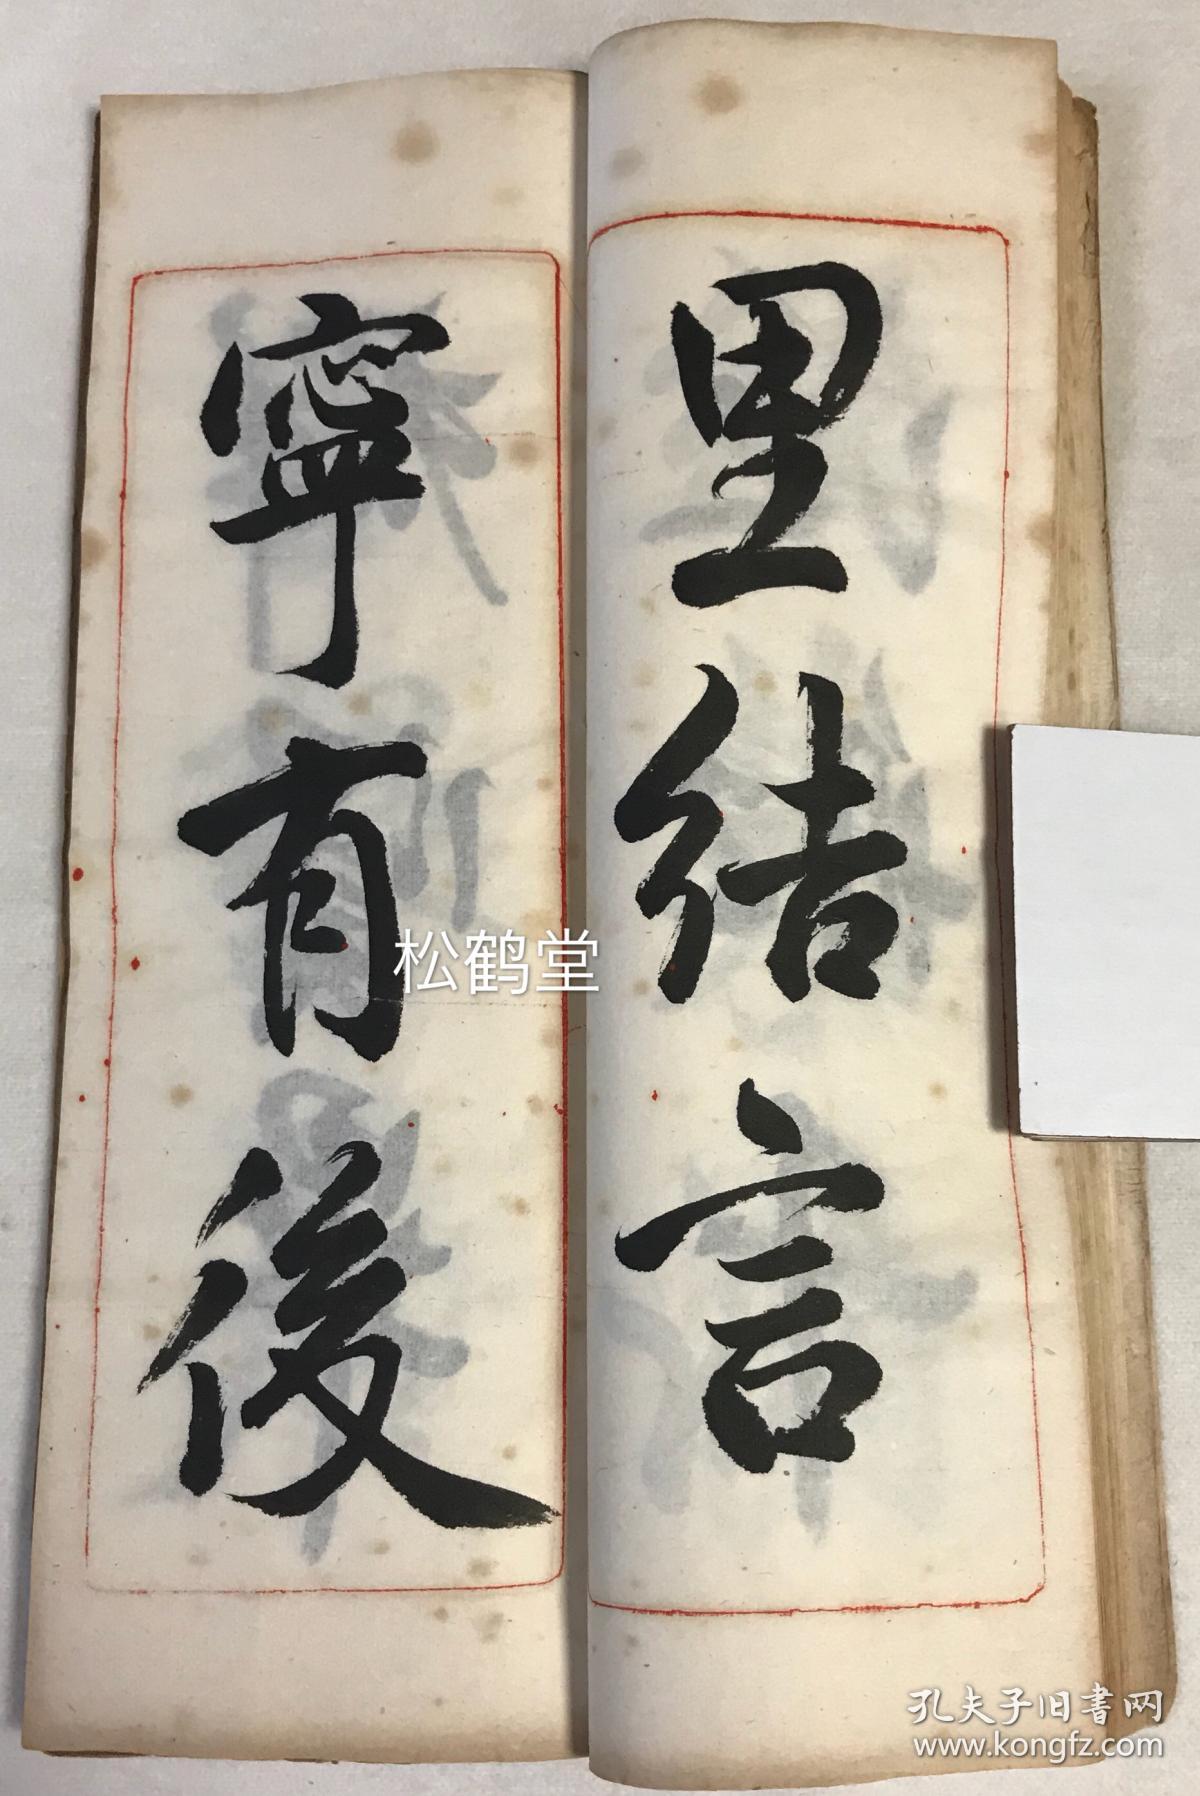 里结言
寧有後
松鹤堂
孔夫子旧書网
www.kongfz.com